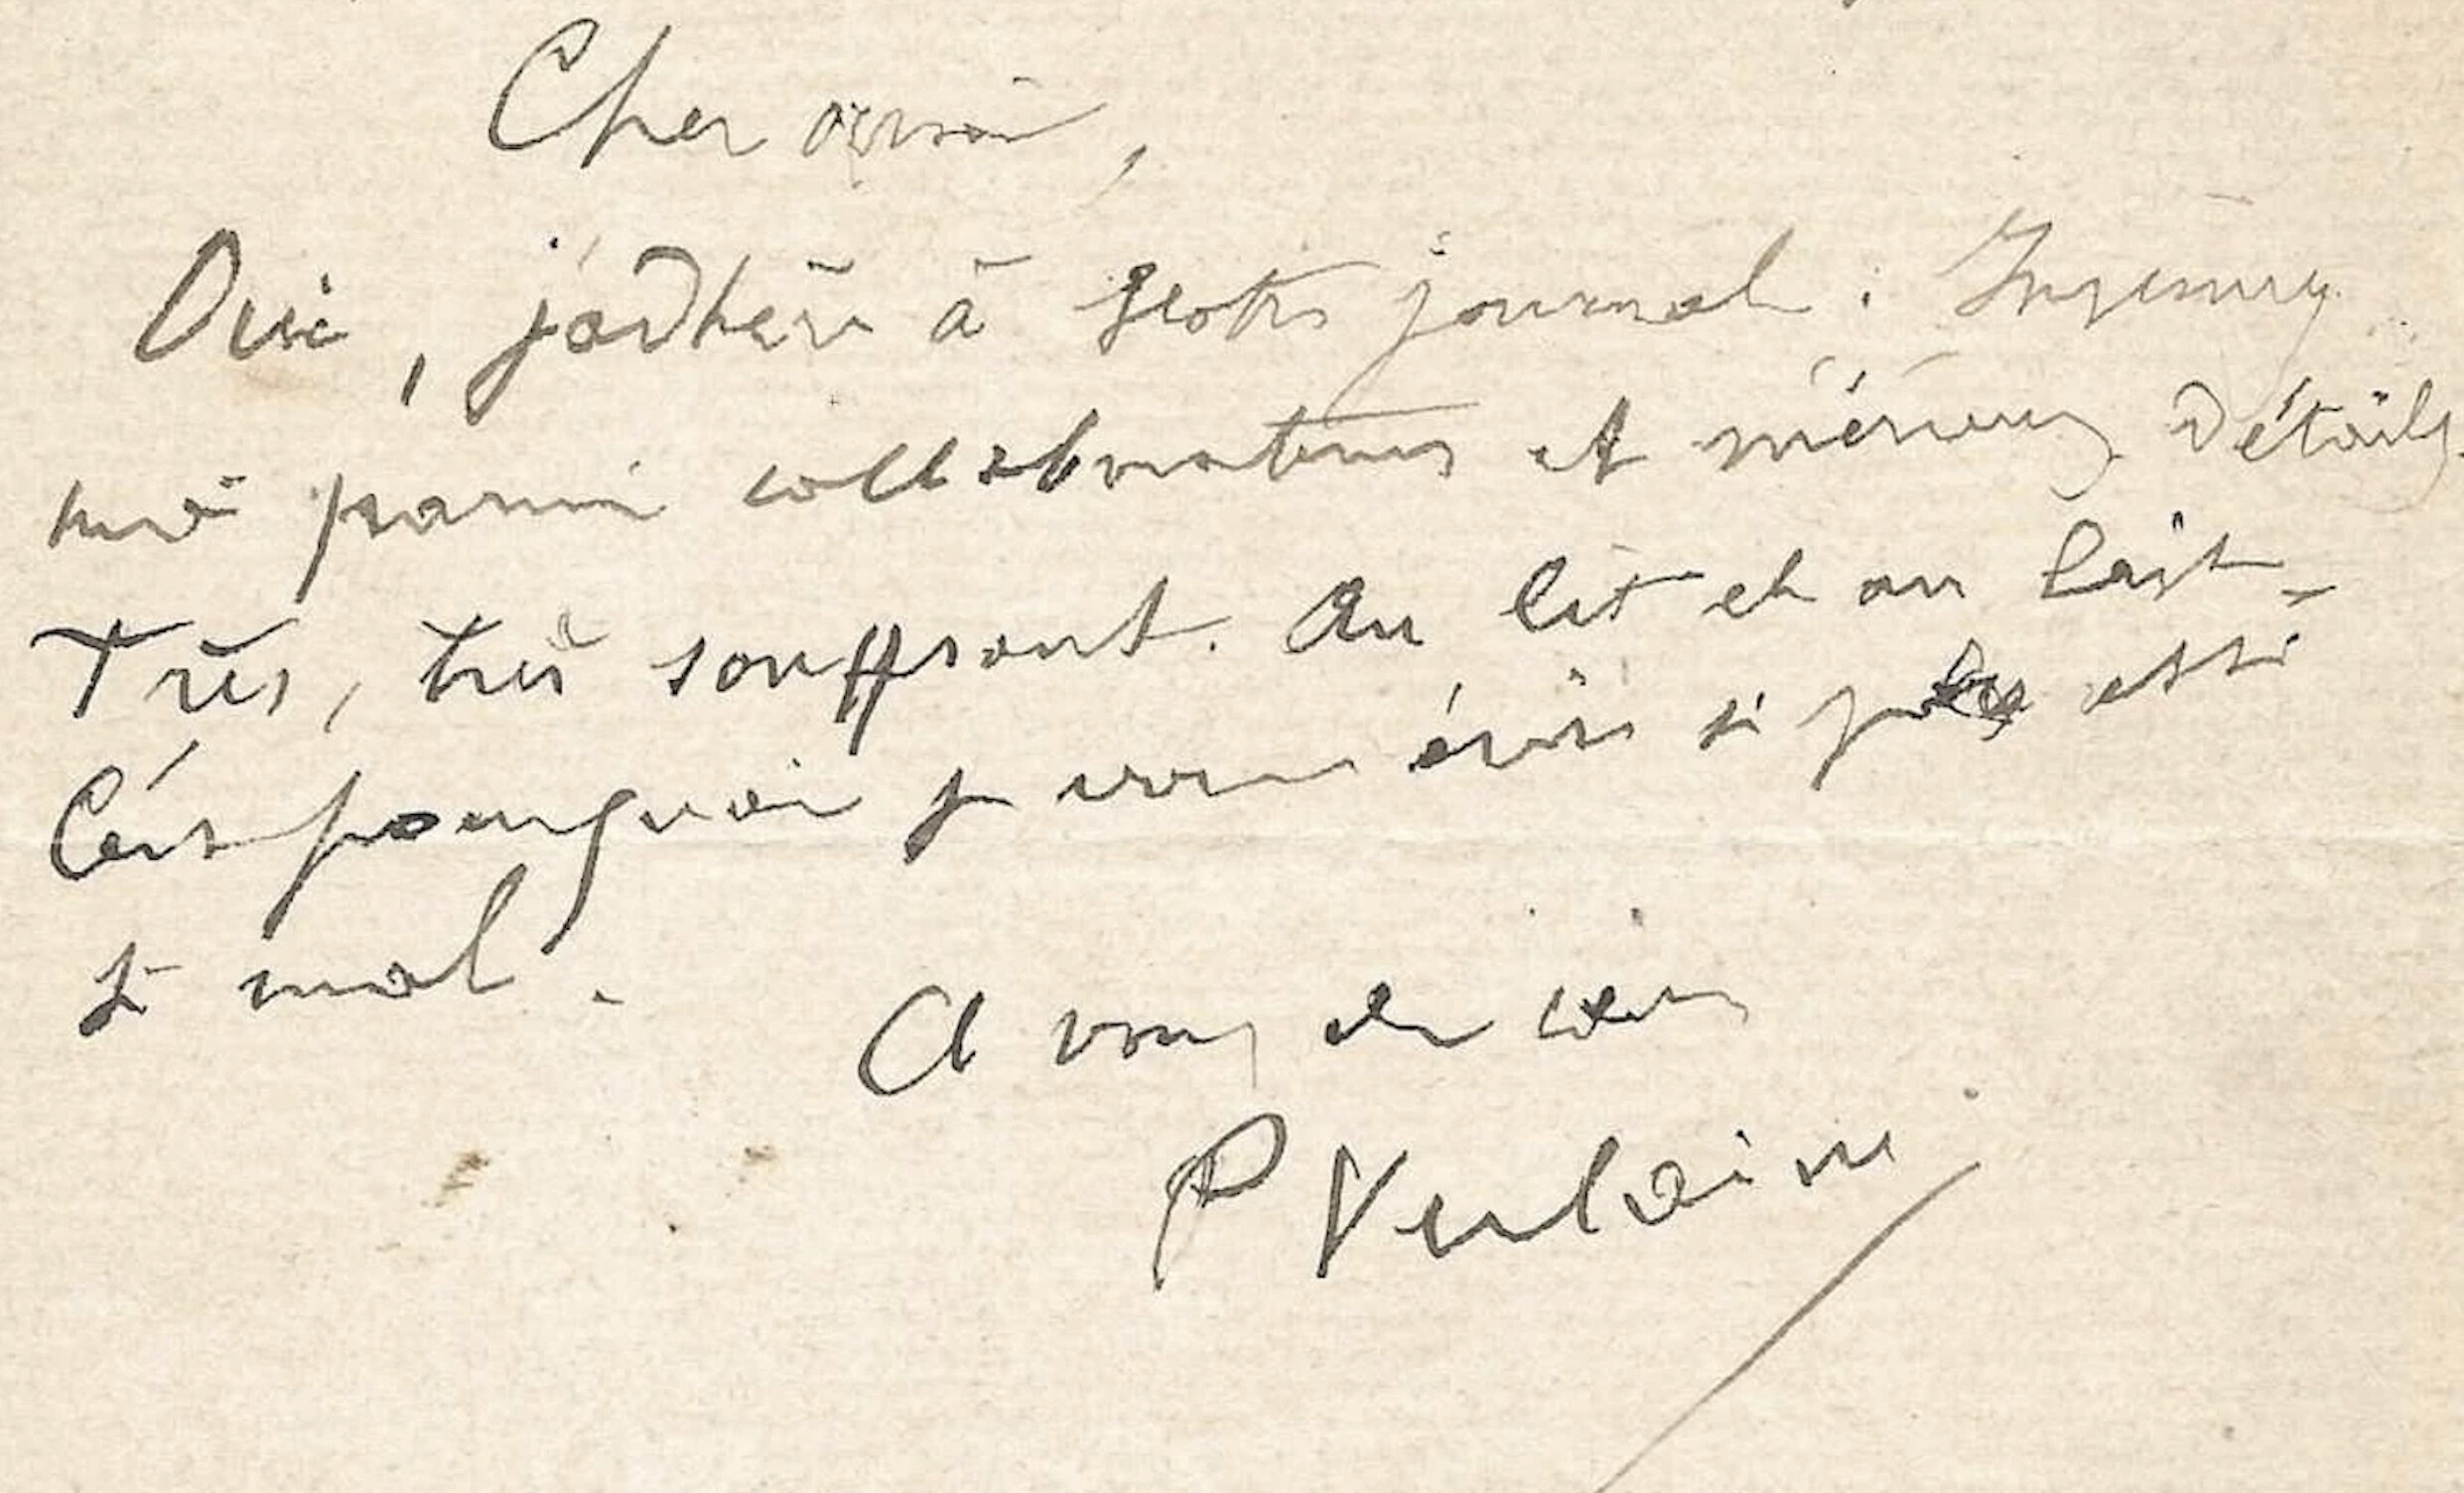 Cher ami,
Oui, j'adhère à votre journal : Inscrivez
moi parmi collaborateurs et m'écrivez détails
Très, très souffrant. Au lit et au lait –
C'est pourquoi je vous écris si peu et si
si mal.
A vous de cœur
P Verlaine